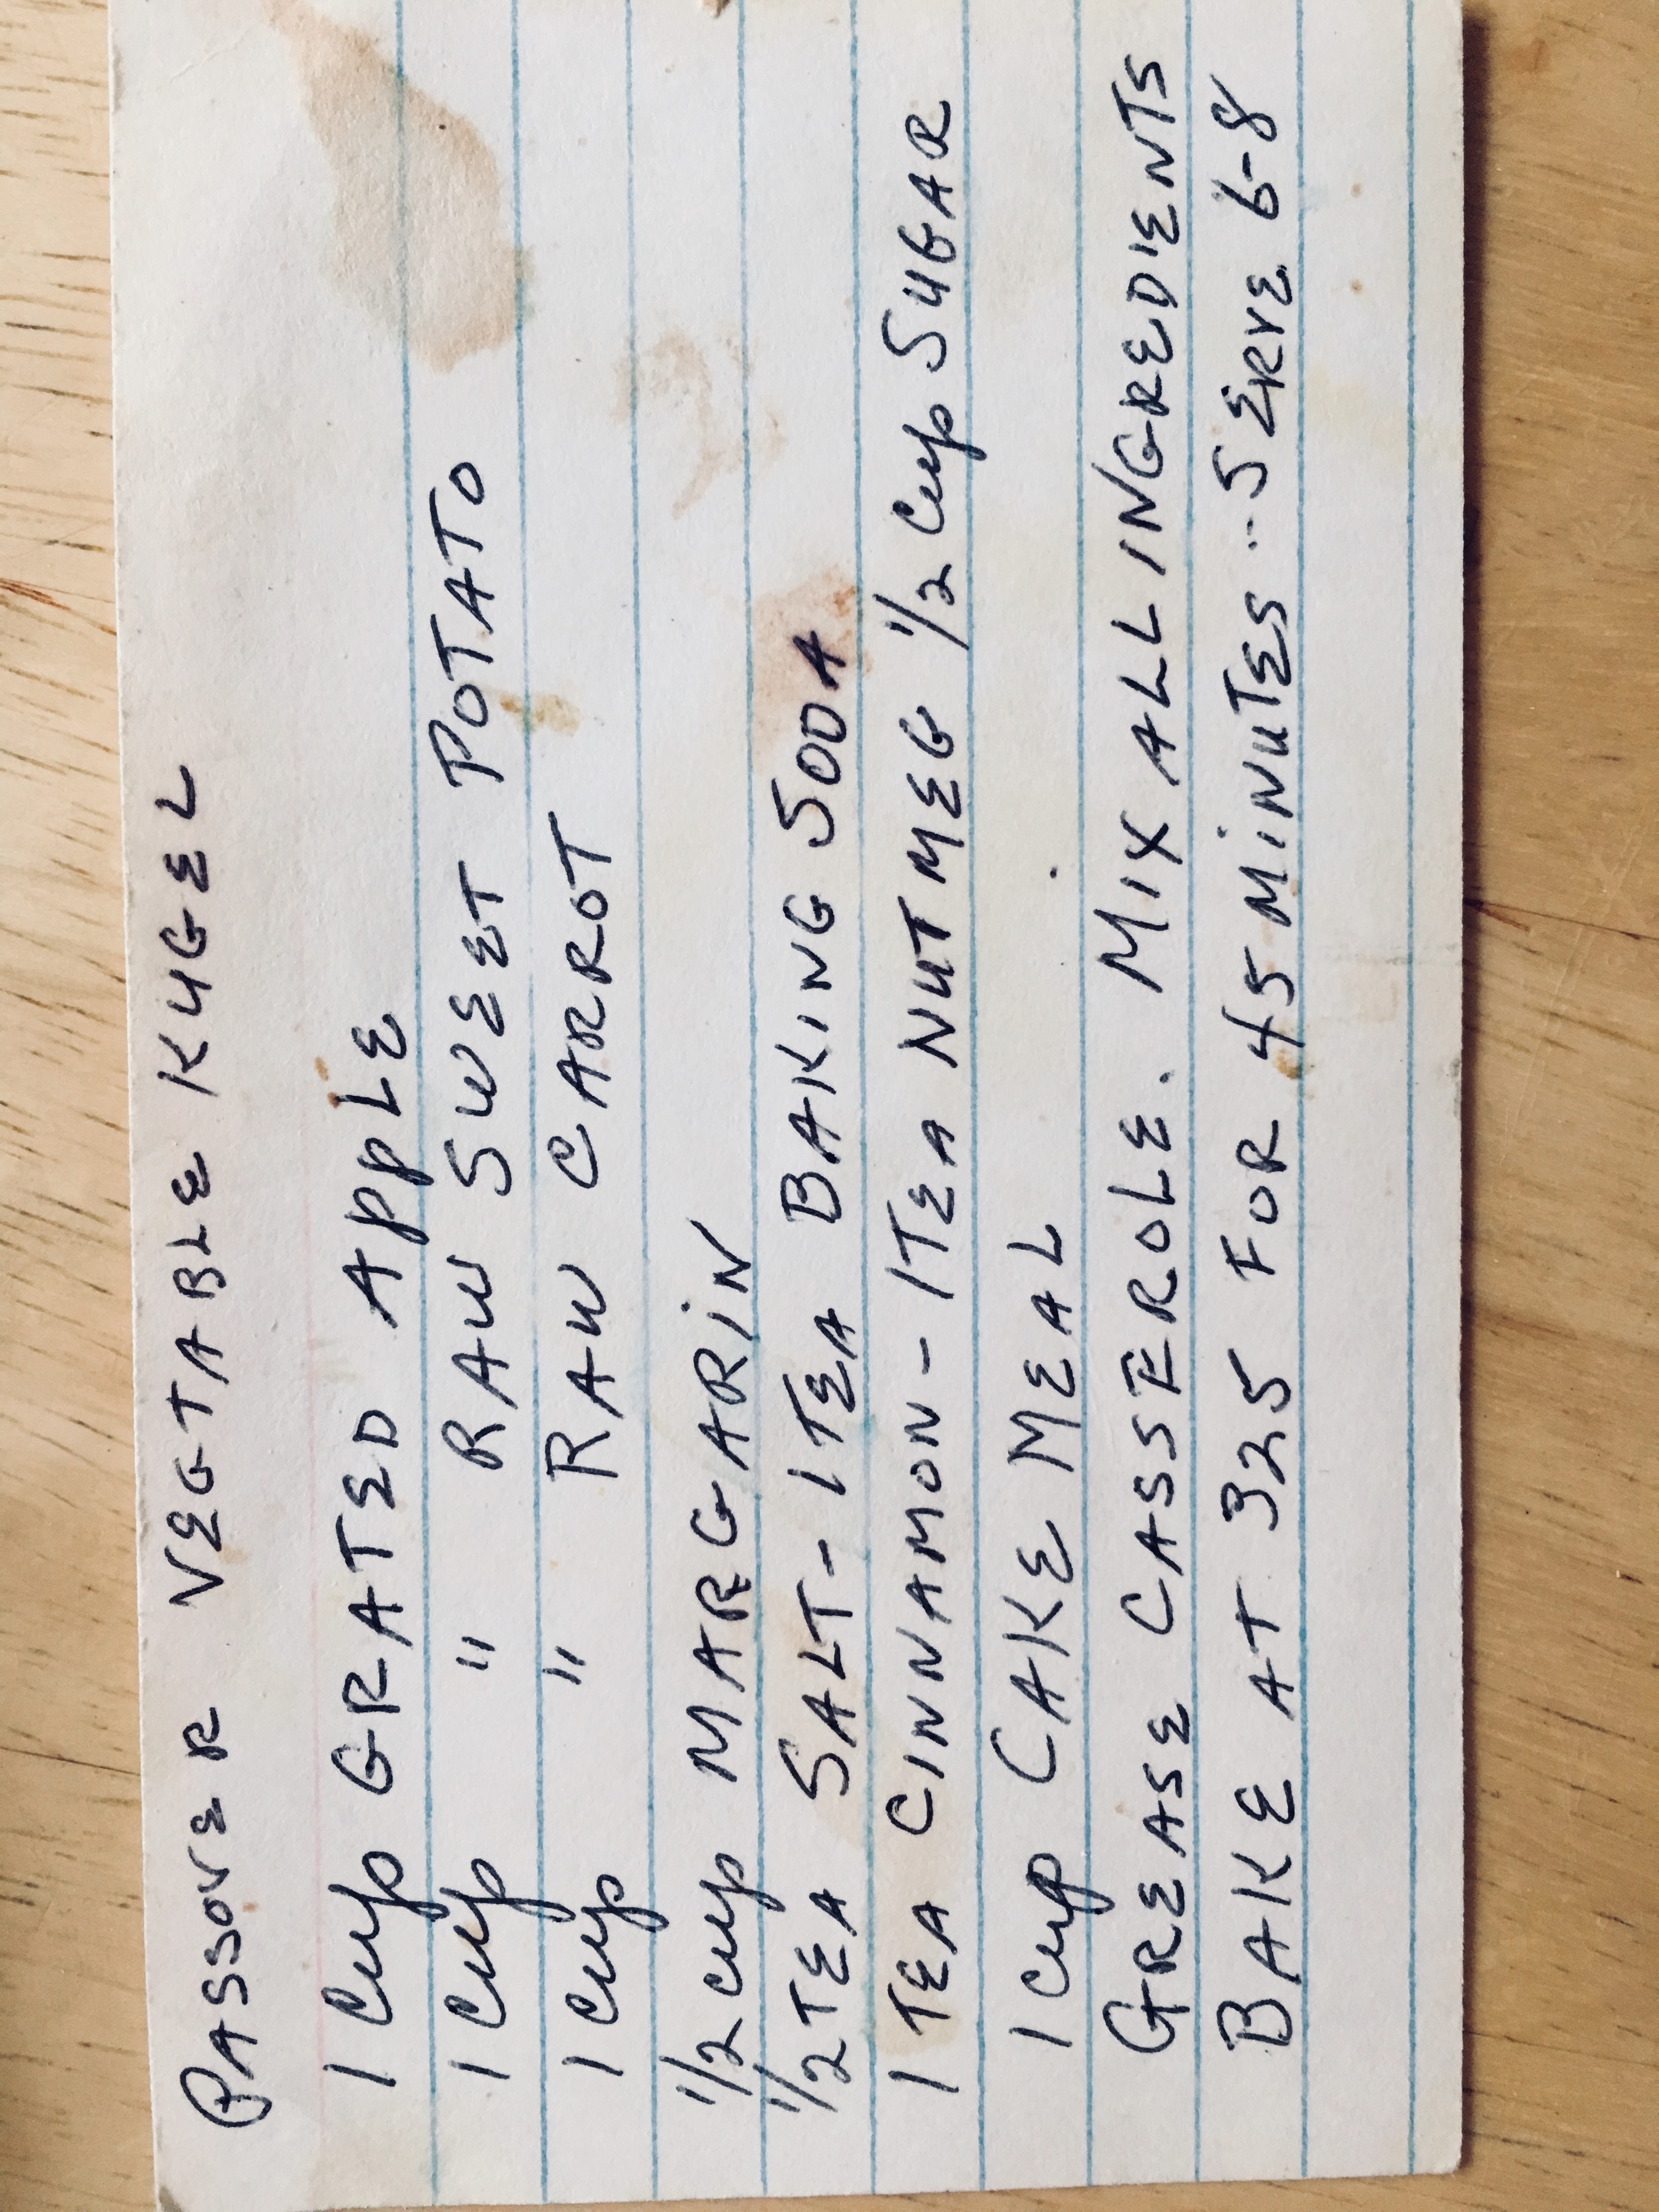 PASSOVER VEGTABLE KUGEL
1 Cup GRATED APPLE
1 Cup " RAW SWEET POTATO
1 Cup " RAW CARROT
1/2 Cup MARGARIN
1/2 TEA SALT - 1 TEA BAKING SODA
1 TEA CINNAMON - 1 TEA NUTMEG 1/2 Cup SUGAR
1 Cup CAKE MEAL
GREASE CASSEROLE. MIX ALL INGREDIENTS
BAKE AT 325 FOR 45 MINUTES.. SERVE 6-8